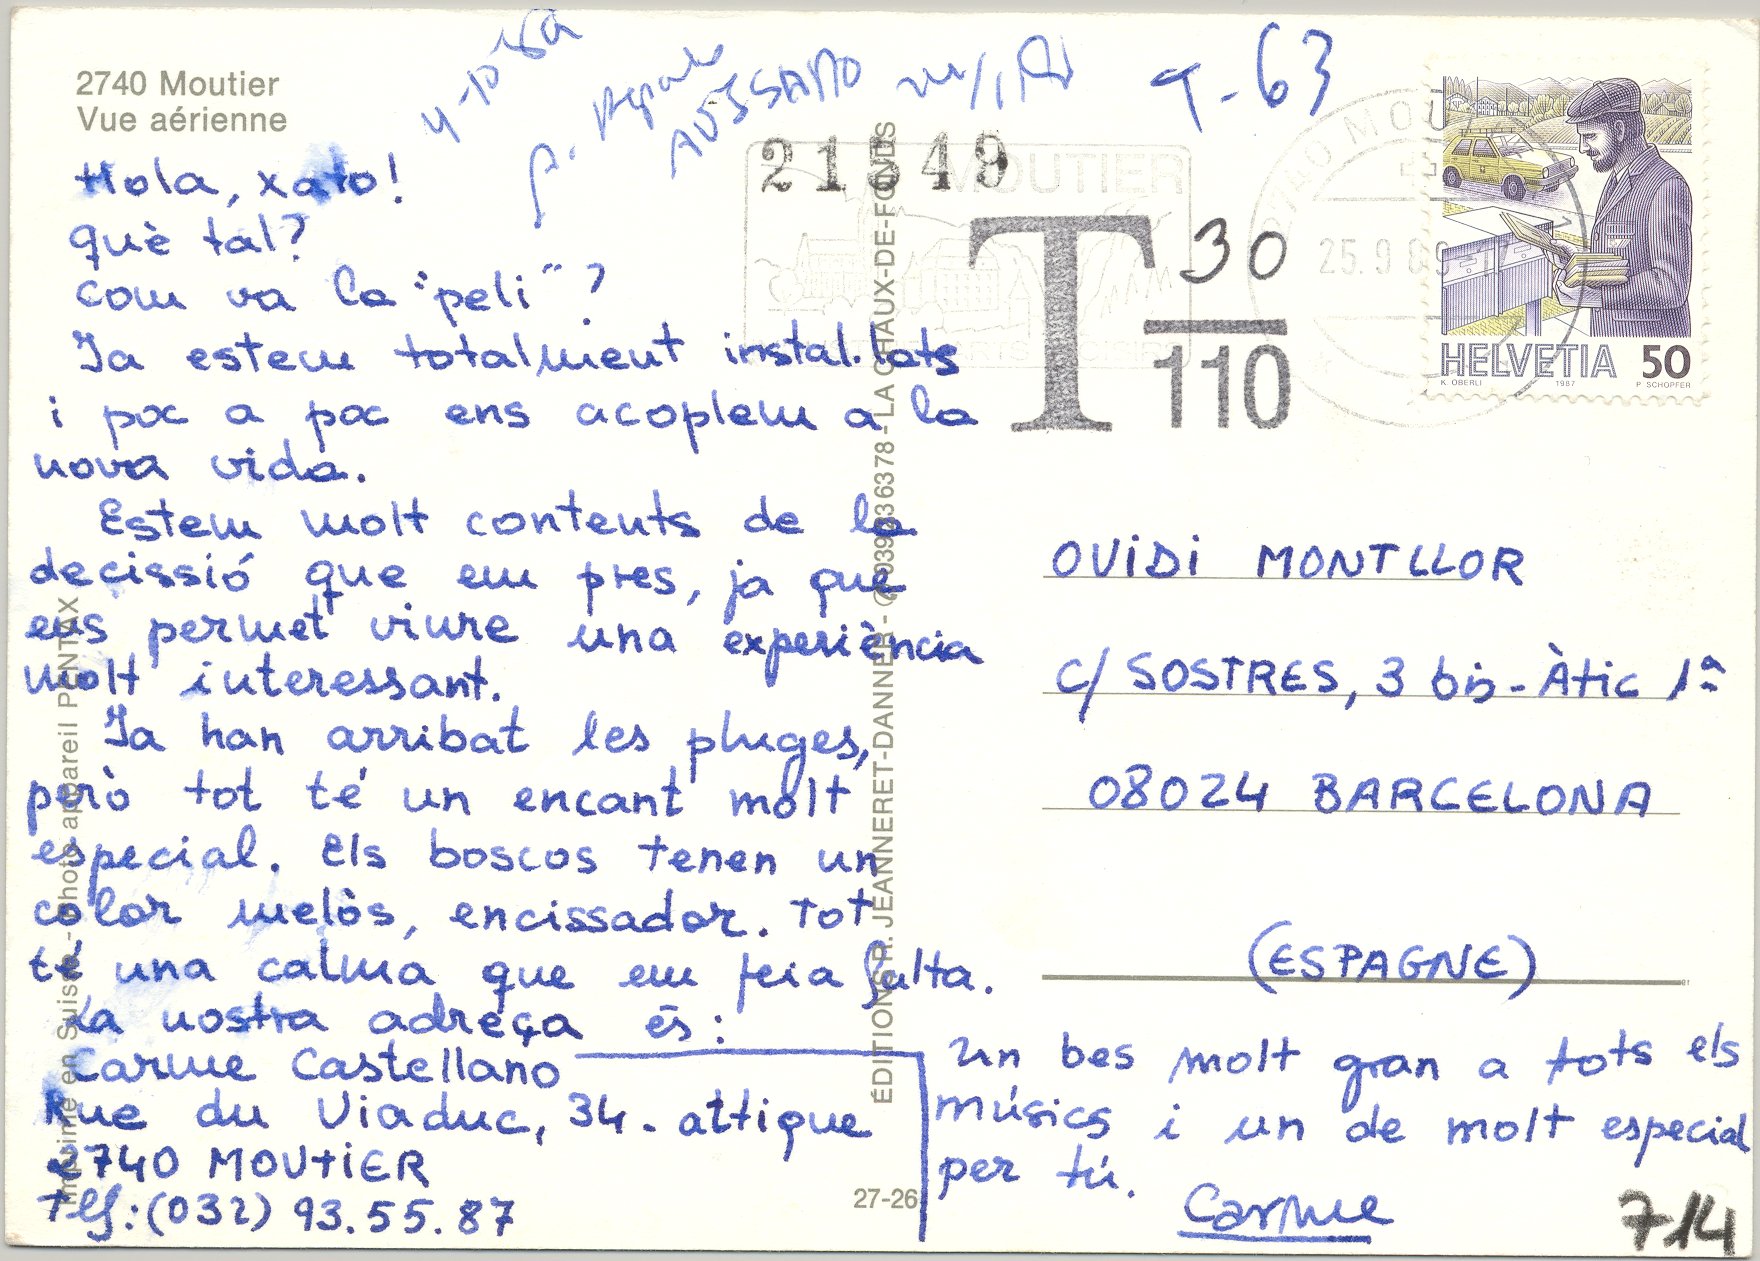 2740 Moutier
Vue aérienne
4-10
AUSSAMO
T-63
21549
MOUTIER
T 30
110
25.9.89
HELVETIA 50
K. OBERLI 1987 P. SCHOPFER
Hola, xato!
què tal?
com va la "peli"?
Ja estem totalment instal·lats
i poc a poc ens acoplem a la
nova vida.
Estem molt contents de la
decissió que em pres, ja que
ens permet viure una experiència
molt interessant.
Ja han arribat les pluges,
però tot té un encant molt
especial. Els boscos tenen un
color melòs, encissador. Tot
té una calma que em feia falta.
La nostra adreça és:
Carme Castellano
Rue du Viaduc, 34 - attique
2740 MOUTIER
Tlf: (032) 93.55.87
OVIDI MONTLLOR
C/ SOSTRES, 3 bis - Àtic 1ª
08024 BARCELONA
(ESPAGNE)
Un bes molt gran a tots els
músics i un de molt especial
per tú.
Carme
ÉDITIONS R. JEANNERET-DANNER - 039/236378 - LA CHAUX-DE-FONDS
Imprimé en Suisse - Photo appareil PENTAX
27-26
714